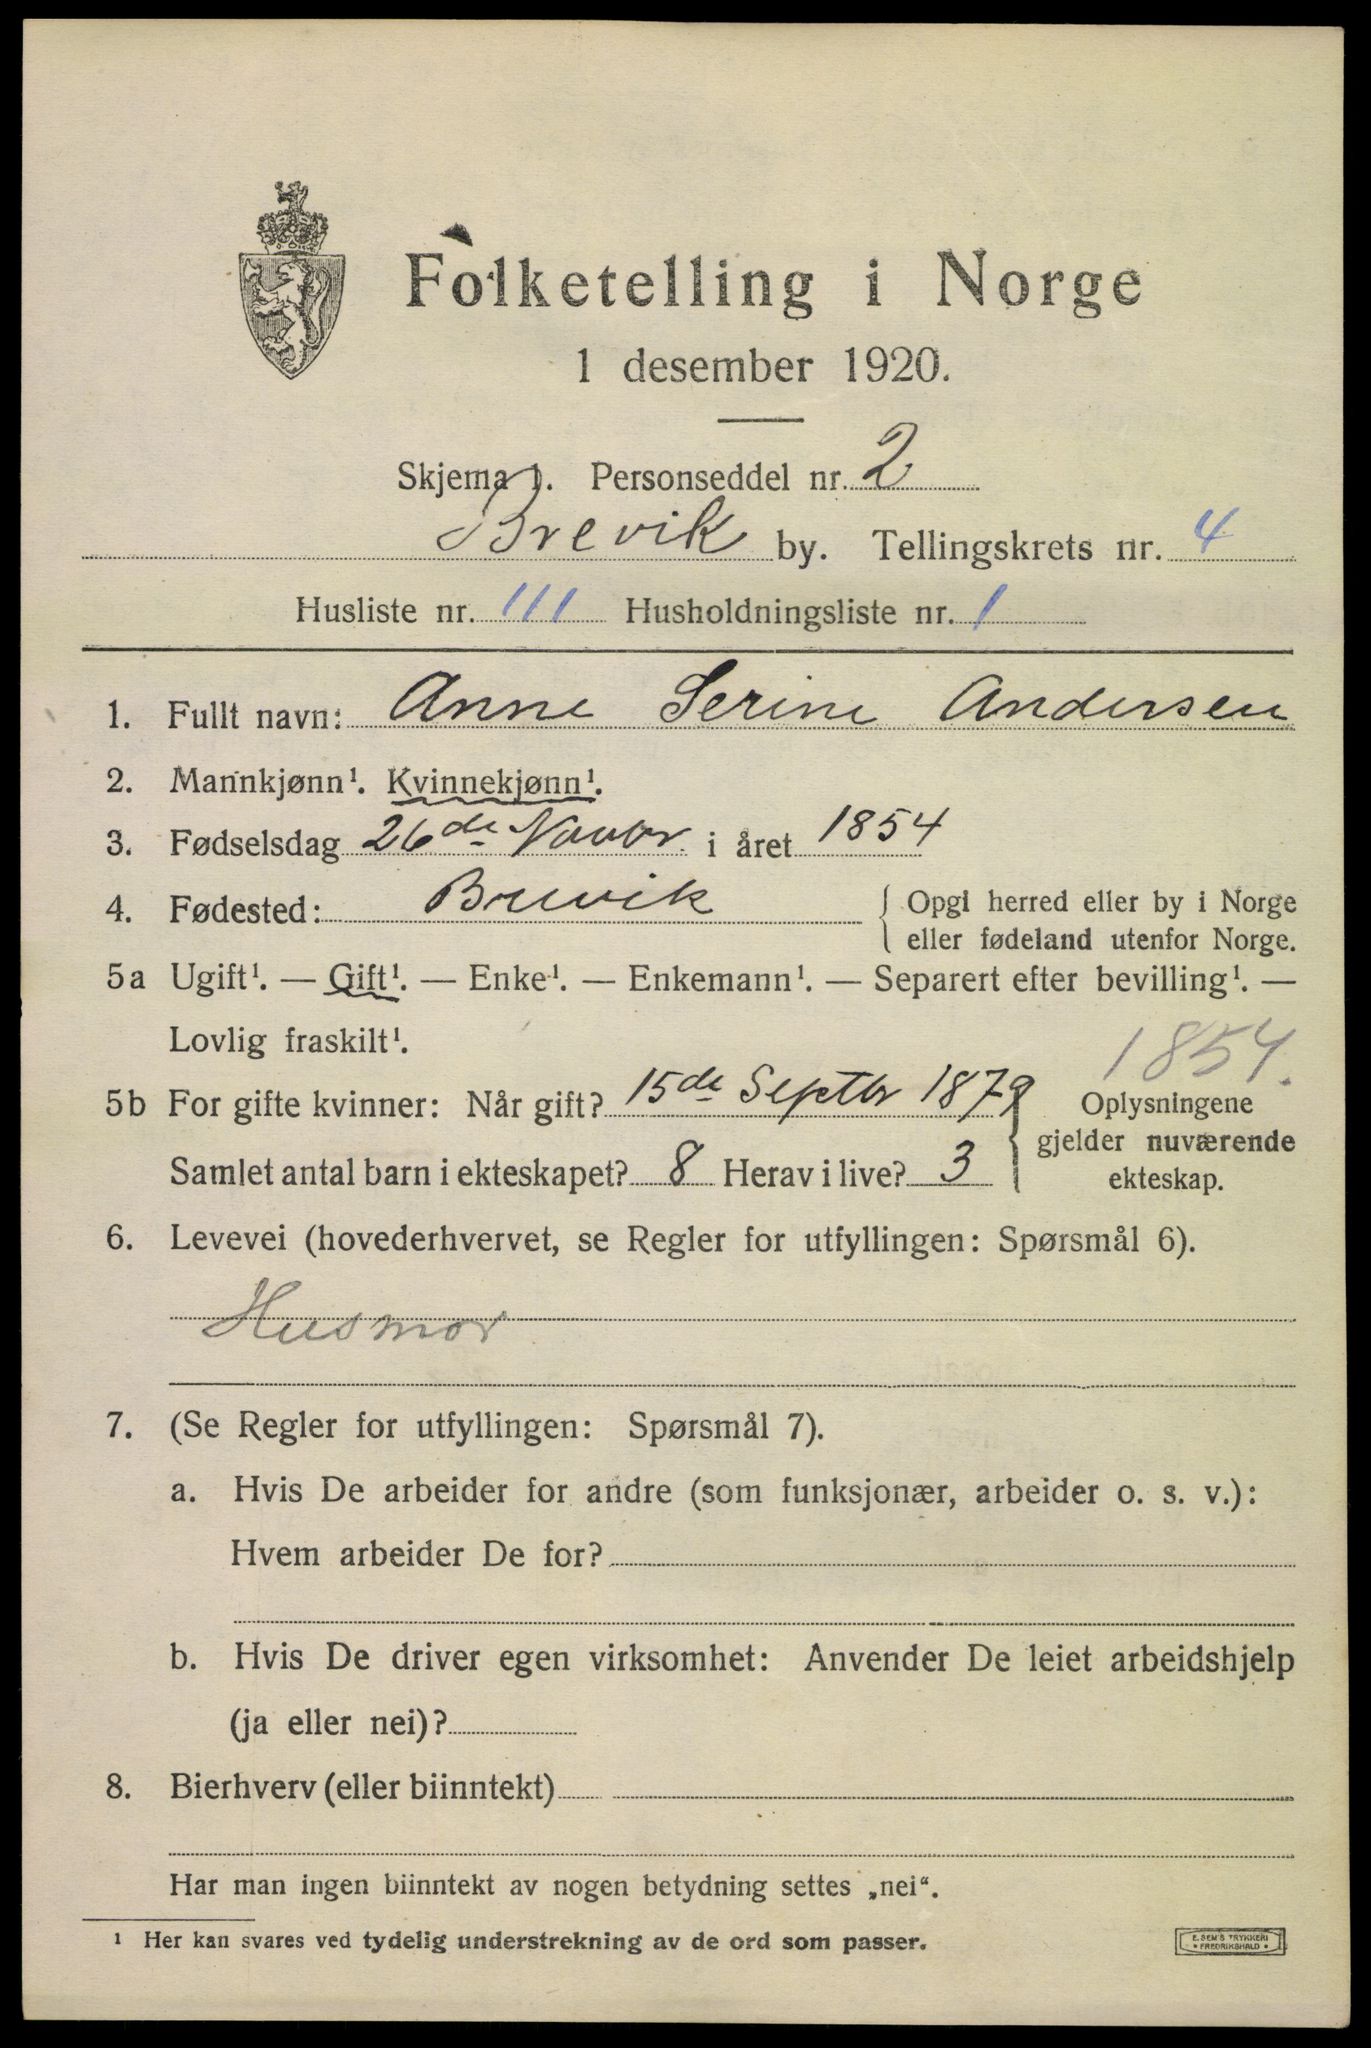 Folketelling i Norge
1 desember 1920.
Skjema 1. Personseddel nr. 2
Brevik by. Tellingskrets nr. 4
Husliste nr. 111 Husholdningsliste nr. 1
1. Fullt navn: Anne Serine Andersen
2. Mannkjønn¹. Kvinnekjønn¹.
3. Fødselsdag 26de Novbr. i året 1854
4. Fødested: Brevik { Opgi herred eller by i Norge
eller fødeland utenfor Norge.
5a Ugift¹. — Gift¹. — Enke¹. — Enkemann¹. — Separert efter bevilling¹. —
Lovlig fraskilt¹.
1854.
5b For gifte kvinner: Når gift? 15de Septbr 1879
Samlet antal barn i ekteskapet? 8 Herav i live? 3
} Oplysningene
gjelder nuværende
ekteskap.
6. Levevei (hovederhvervet, se Regler for utfyllingen: Spørsmål 6).
Husmor
7. (Se Regler for utfyllingen: Spørsmål 7).
a. Hvis De arbeider for andre (som funksjonær, arbeider o. s. v.):
Hvem arbeider De for?
b. Hvis De driver egen virksomhet: Anvender De leiet arbeidshjelp
(ja eller nei)?
8. Bierhverv (eller biinntekt)
Har man ingen biinntekt av nogen betydning settes „nei“.
¹ Her kan svares ved tydelig understrekning av de ord som passer.
E. SEM'S TRYKKERI
• FREDRIKSHALD •